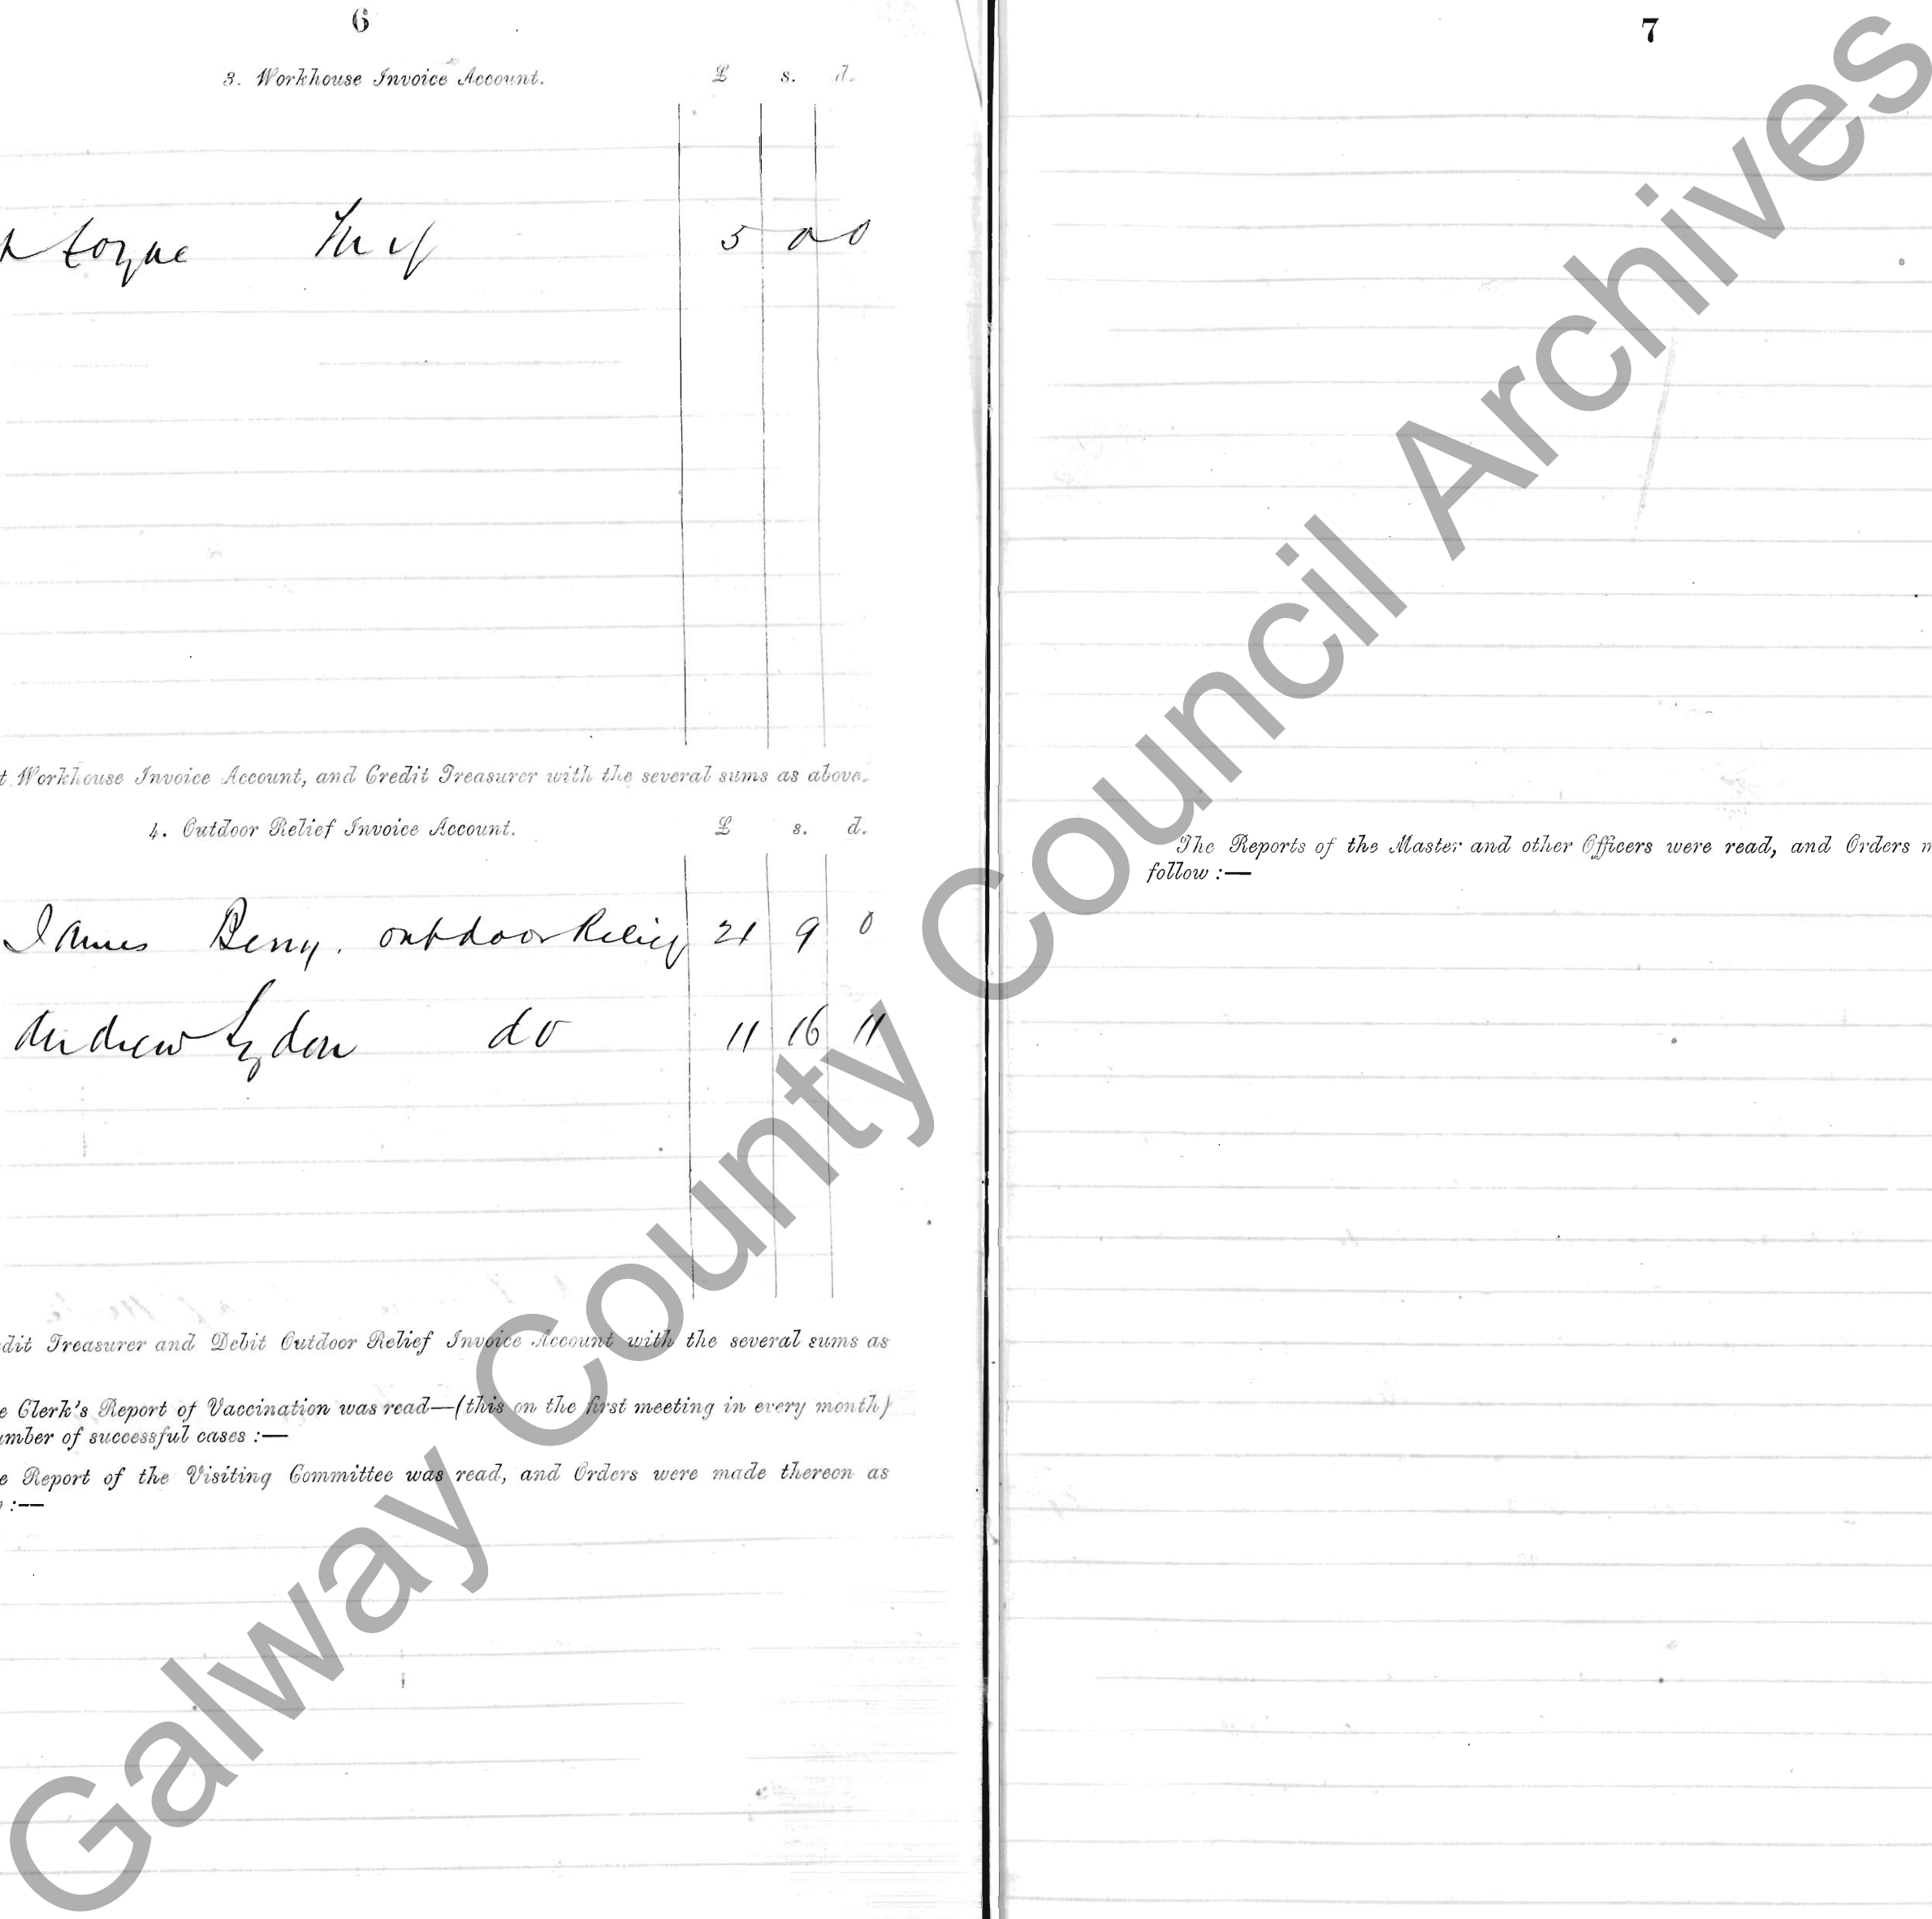 6
3. Workhouse Invoice Account. £ s. d.
Coyne Turf 5 0 0
Workhouse Invoice Account, and Credit Treasurer with the several sums as above.
4. Outdoor Relief Invoice Account. £ s. d.
James Berry. outdoor Relief 21 9 0
Andrew Lydon do 11 16 11
dit Treasurer and Debit Outdoor Relief Invoice Account with the several sums as
e Clerk's Report of Vaccination was read—(this on the first meeting in every month)
umber of successful cases :—
e Report of the Visiting Committee was read, and Orders were made thereon as
:—
7
The Reports of the Master and other Officers were read, and Orders m
follow :—
Galway County Council Archives